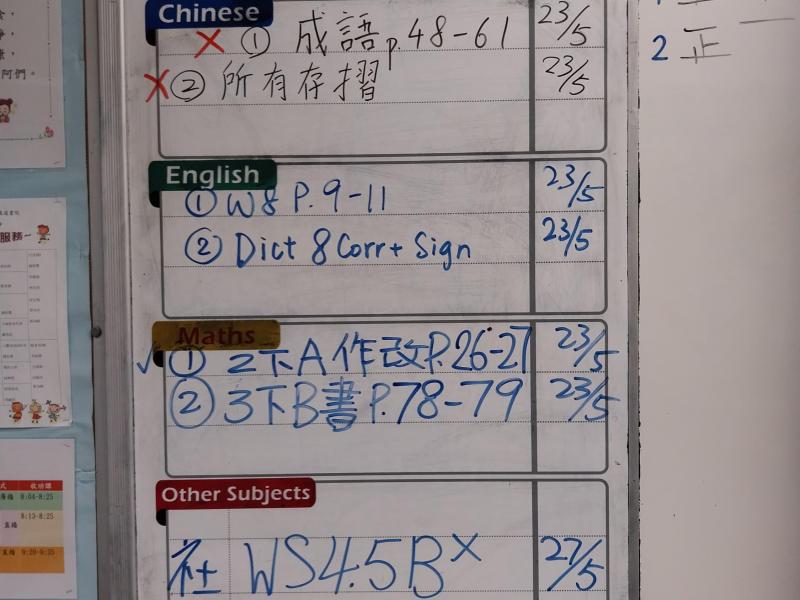 Chinese
① 成語p.48-61 23/5
② 所有存摺 23/5
English
① W8 P.9-11 23/5
② Dict 8 Corr+ Sign 23/5
Maths
① 2下A作改P.26-27 23/5
② 3下B書P.78-79 23/5
Other Subjects
社 WS4.5B 27/5
2 正
阿們。
服務~
收功課
8:04-8:25
8:13-8:25
直播
直播 9:20-9:35